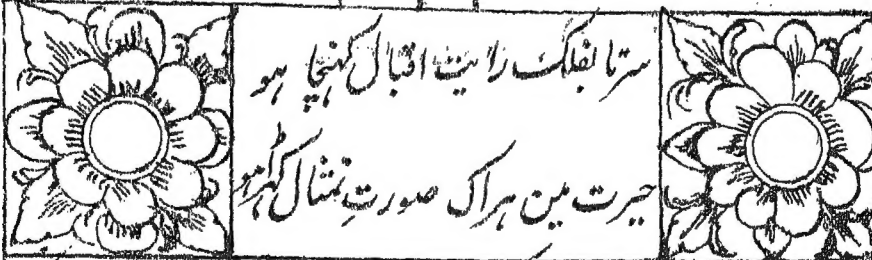 سرتا بفلک رایت اقبال کہنچا ہو
حیرت مین ہراک صورتِ تمثال کہڑا ہو